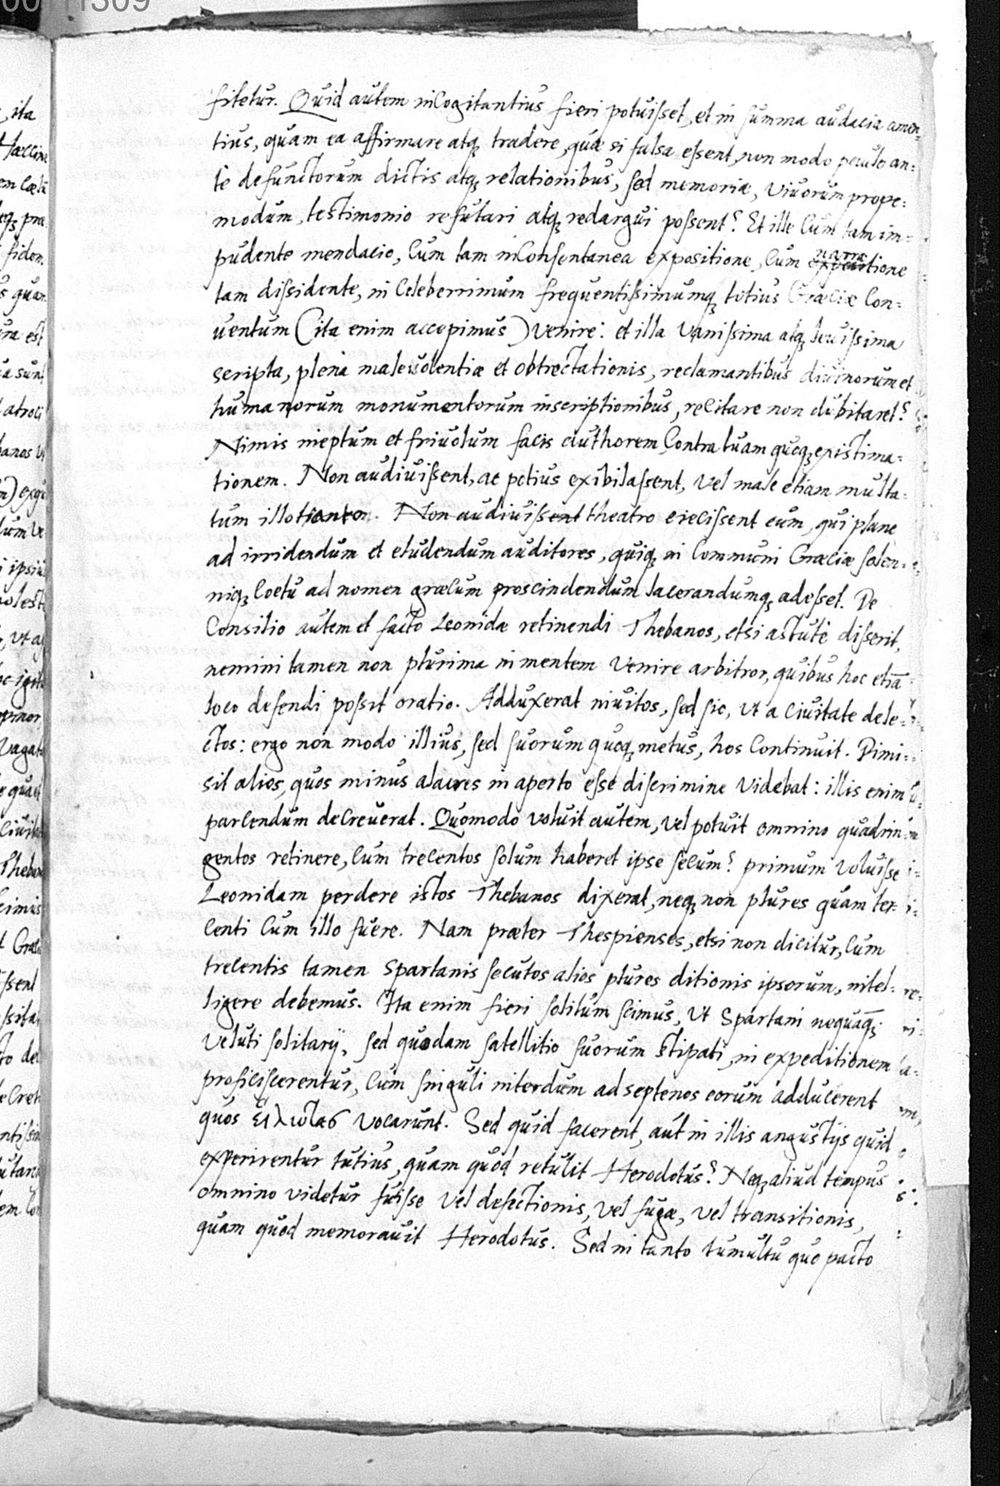 fitetur. Quid autem incogitantius fieri potuisset, et in summa audacia amen-
tius, quam ea affirmare atq; tradere, quæ si falsa essent, non modo paulo an-
te defunctorum dictis atq; relationibus, sed memoriæ, vivorum prope-
modum, testimonio refutari atq; redargui possent? Et ille cum tam im-
pudente mendacio, cum tam inconsentanea expositione, cum narratione
tam dissidente, in celeberrimum frequentissimumq; totius Græciæ con-
ventum (ita enim accepimus) venire: et illa vanissima atq; levissima
scripta, plena malevolentiæ et obtrectationis, reclamantibus divinorum et
humanorum monumentorum inscriptionibus, recitare non dubitaret?
Nimis ineptum et frivolum facis authorem contra tuam quoq; existima-
tionem. Non audivissent, ac potius exibilassent, vel male etiam multa-
tum illotianton. Non audivissent theatro eiecissent eum, qui plane
ad irridendum et eludendum auditores, quiq; in communi Græciæ solen-
niq; coetu ad nomen græcum proscindendum lacerandumq; adesset. De
Consilio autem et facto Leonidæ retinendi Thebanos, etsi astute disserit,
nemini tamen non plurima in mentem venire arbitror, quibus hoc etiā
loco defendi possit oratio. Adduxerat invitos, sed sic, ut a civitate dele-
ctos: ergo non modo illius, sed suorum quoq; metus, hos continuit. Dimi-
sit alios, quos minus alacres in aperto esse discrimine videbat: illis enim
parcendum decreverat. Quomodo voluit autem, vel potuit omnino quadrin-
gentos retinere, cum trecentos solum haberet ipse secum? primum voluisse
Leonidam perdere istos Thebanos dixerat, neq; non plures quam tre-
centi cum illo fuere. Nam præter Thespienses, etsi non dicitur, cum
trecentis tamen Spartanis secutos alios plures ditionis ipsorum, intel-
ligere debemus. Ita enim fieri solitum scimus, ut Spartani nequaq̃;
veluti solitarij, sed quodam satellitio suorum stipati, in expeditionem
proficiscerentur, cum singuli interdum ad septenos eorum adducerent
quos εἵλωτας vocarunt. Sed quid facerent, aut in illis angustijs quid
experirentur tutius, quam quod retulit Herodotus? Neq; aliud tempus
omnino videtur fuisse vel defectionis, vel fugæ, vel transitionis,
quam quod memoravit Herodotus. Sed in tanto tumultu quo pacto